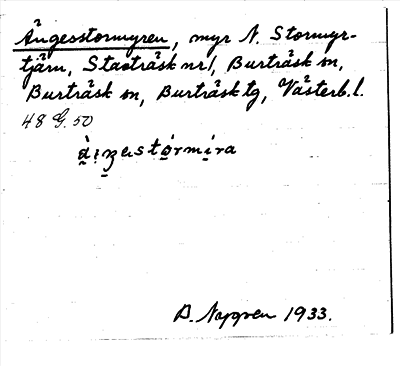 Ängesstormyren, myr N. Stormyr-
tjärn, Staträsk nr 1, Burträsk sn,
Burträsk sn, Burträsk tg, Västerb. l.
48 G. 50
B. 1933.